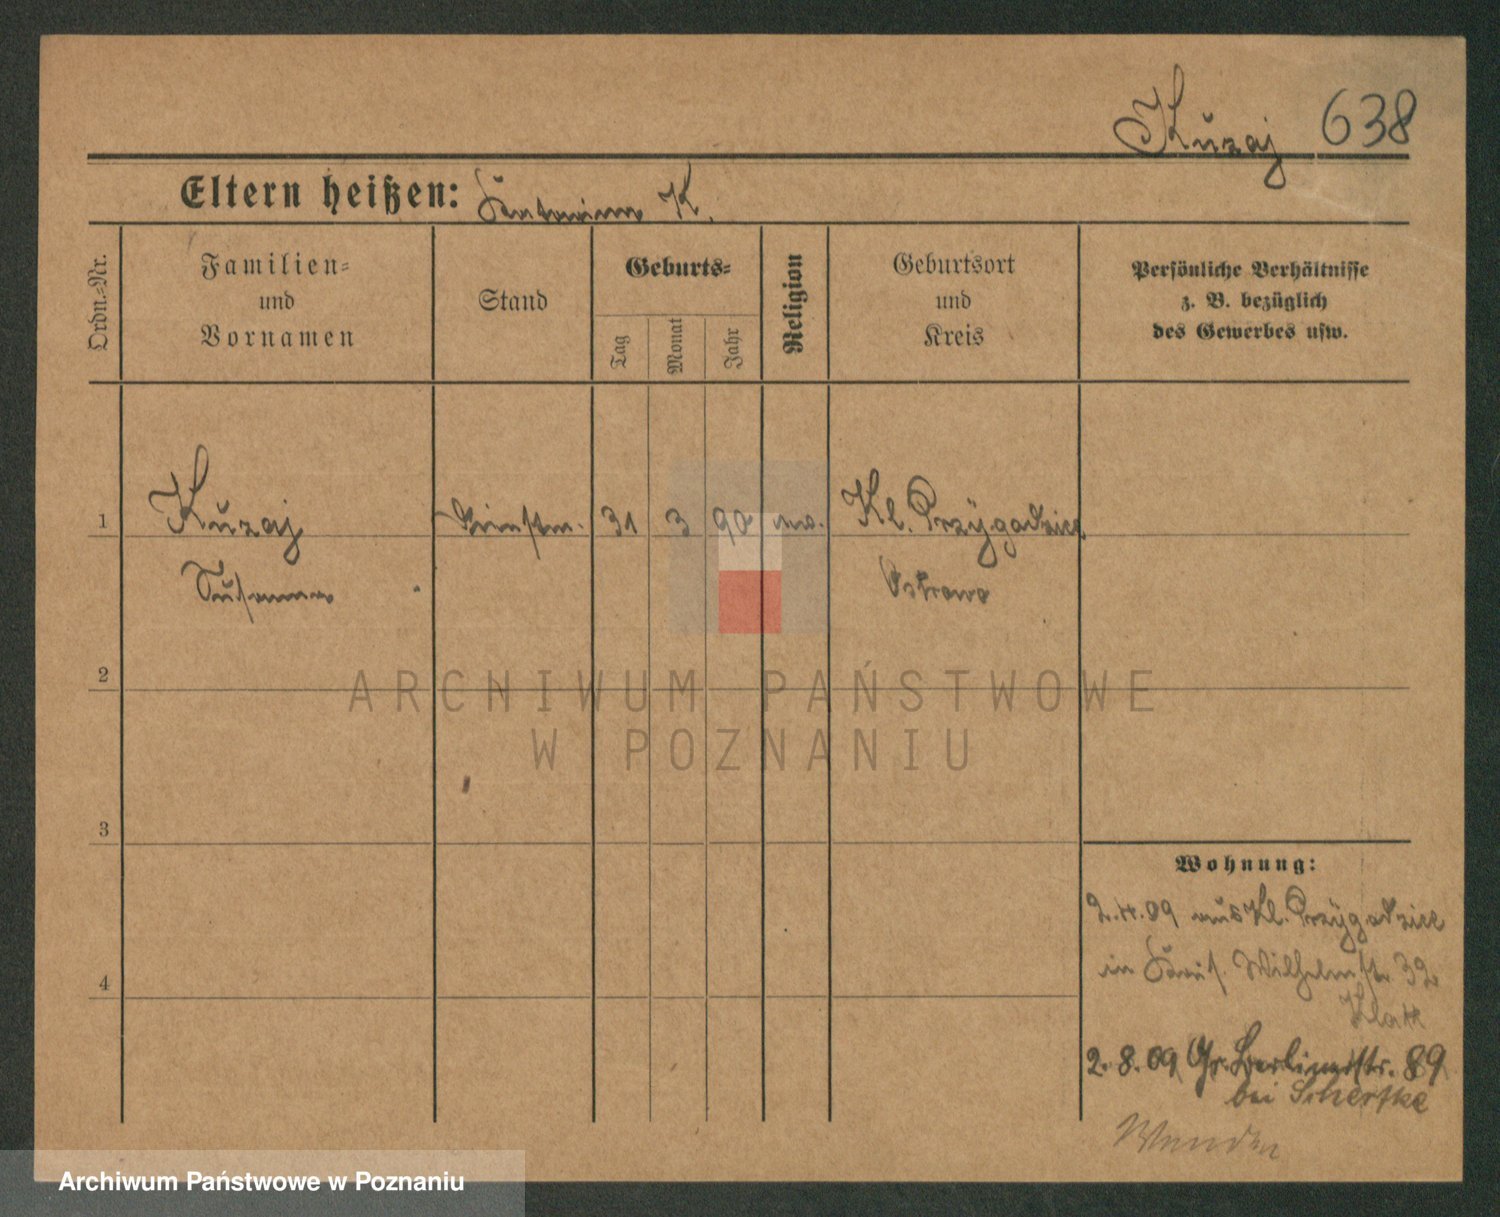 Kużaj 638
Eltern heißen: K.
Ordn.-Nr.
Familien-
und
Vornamen
Stand
Geburts-
Tag
Monat
Jahr
Religion
Geburtsort
und
Kreis
Persönliche Verhältnisse
z. B. bezüglich
des Gewerbes usw.
1 Kużaj 31 3 90 Kl. Przygodzice
Susanna Ostrowo
2
ARCHIWUM PAŃSTWOWE
W POZNANIU
3
Wohnung:
2.4.09 aus Kl. Przygodzice
in Wilhelmstr. 32
Klatt
4
2.8.09 Gr. Berlinerstr. 89
bei Schertke
Archiwum Państwowe w Poznaniu